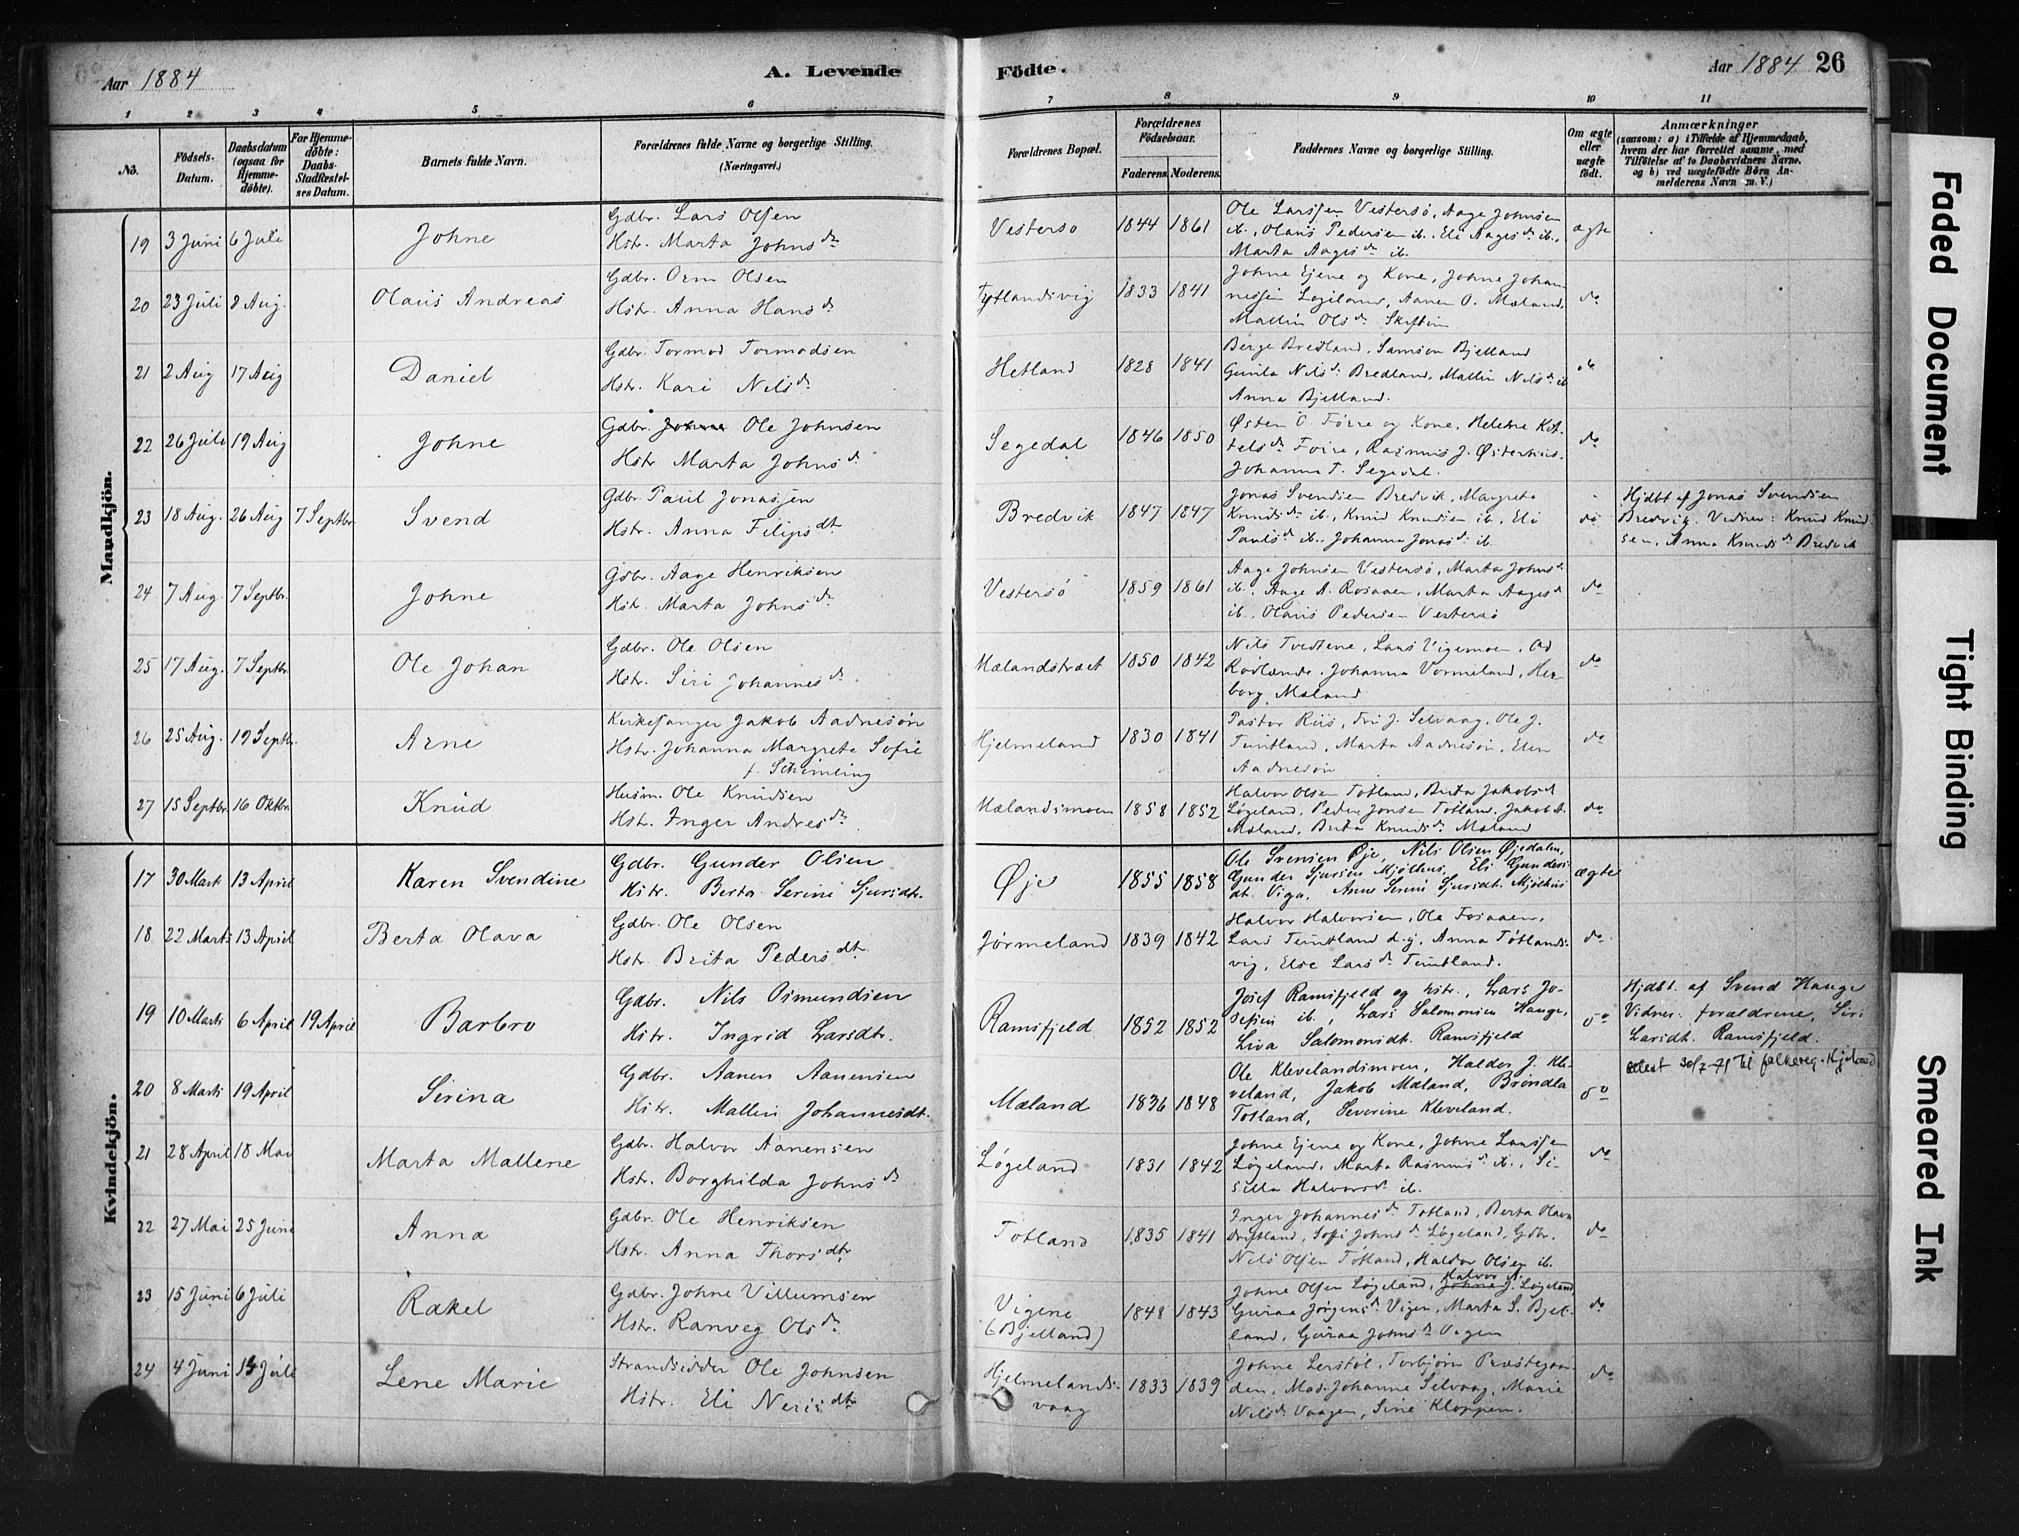 Aar 1884
A. Levende
Födte.
Aar 1884 26
1 2 3 4 5 6 7 8 9 10 11
No.
Födsels-Datum.
Daabsdatum (ogsaa for Hjemmedøbte).
For Hjemmedøbte: Daabs-Stadfæstelses Datum.
Barnets fulde Navn.
Forældrenes fulde Navne og borgerlige Stilling. (Næringsvei.)
Forældrenes Bopæl.
Forældrenes Födselsaar.
Faderens Moderens
Faddernes Navne og borgerlige Stilling.
Om ægte eller uægte født.
Anmærkninger
(saasom: a) i Tilfælde af Hjemmedaab, hvem der har forrettet samme, med Tilföielse af to Daabsvidners Navne, og b) ved uægtefödte Börn Anmelderens Navn m. V.)
Mandkjön.
19 3 Juni 6 Juli Johne
Gdbr. Lars Olsen
Hstr. Marta Johnsdr
Vestersø 1844 1861
Ole Larssen Vestersø, Aage Johnsen
ib., Olaus Pedersen ib., Eli Aagesdr ib.,
Marta Aagesdr ib.
ægte
20 23 Juli 8 Aug. Olaus Andreas
Gdbr. Orm Olsen
Hstr. Anna Hansdr
Tytlandsvig 1833 1841
Johne Ejene og Kone, Johne Johan
nessen Løgeland, Aanen O. Mæland,
Mallin Olsdr Skiftun
do
21 2 Aug 17 Aug Daniel
Gdbr. Tormod Tormodsen
Hstr. Kari Nilsdr
Hetland 1828 1841
Berge Bredland, Samson Bjelland
Gunla Nilsdr Bredland, Mallin Nilsdr ib
Anna Bjelland.
do
22 26 Juli 19 Aug Johne
Gdbr. Johne Ole Johnsen
Hstr. Marta Johnsdr
Segedal 1846 1850
Østen O Førre og Kone, Helene Kit-
telsdr Førre, Rasmus J. Østerhus.
Johanna T. Segedal.
do
23 18 Aug. 26 Aug 7 Septbr Svend
Gdbr. Paul Jonassen
Hstr. Anna Filipsdt
Bredvik 1847 1847
Jonas Svendsen Bredvik, Margreta
Knudsdr ib., Knud Knudsen ib, Eli
Paulsdr ib., Johanna Jonasdr ib.
do
Hjdbt af Jonas Svendsen
Bredvik. Vidner: Knud Knud
sen, Anna Knudsdr Bredvik
24 7 Aug. 7 Septbr. Johne
Gdbr. Aage Henriksen
Hstr. Marta Johnsdr
Vestersö 1859 1861
Aage Johnsen Vestersø, Marta Johnsdr
ib., Aage A. Rosaaen, Marta Aagesdr
ib., Olaus Pedersen Vestersø
do
25 17 Aug. 7 Septbr Ole Johan
Gdbr. Ole Olsen
Hstr. Siri Johannesdr
Mælandstræet 1850 1842
Nils Tvedtene, Lars Vigemoen, Od
Rødlende, Johanna Vormeland, Her-
borg Mæland
do
26 25 Aug. 19 Septbr. Arne
Kirkesanger Jakob Aadnesøn
Hstr. Johanna Margrete Sofie
f. Schimling
Hjelmeland 1830 1841
Pastor Riis, Frk J. Selvaag, Ole J.
Tuntland, Marta Aadnesøn, Elen
Aadnesøn
do
27 15 Septbr. 16 Oktbr. Knud
Husm. Ole Knudsen
Hstr. Inger Andresdr
Mælandsmoen 1858 1852
Halvor Olsen Tøtland, Berta Jakobsd
Løgeland, Peder Jonsen Tøtland, Jakob A.
Mæland, Berta Knudsdr Mæland
do
Kvindekjön.
17 30 Marts 13 April Karen Svendine
Gdbr. Gunder Olsen
Hstr. Berta Serine Sjursdt.
Øje 1855 1858
Ole Svensen Øje, Nils Olsen Øjedalen,
Gunder Sjursen Mjølhus, Eli Gunders-
dt. Viga, Anne Serine Sjursdt. Mjølhus
ægte
18 22 Marts 13 April Berta Olava
Gdbr. Ole Olsen
Hstr. Brita Pedersdt
Jørmeland 1839 1842
Halvor Halvorsen, Ole Fosaaen,
Lars Tuntland d.y., Anna Tøtlands-
vig, Else Larsdr Tuntland.
do
19 10 Marts 6 April 19 April Barbro
Gdbr. Nils Osmundsen
Hstr. Ingrid Larsdtr.
Ramsfjeld 1852 1852
Josef Ramsfjeld og hstr., Lars Jo-
sefsen ib., Lars Salomonsen Hauge,
Liva Salomonsdt. Ramsfjeld
do
Hjdbt. af Svend Hauge
Vidner: forældrene, Siri
Larsdt. Ramsfjeld.
Attest 30/7-71 til folkereg. Hjelmeland
20 8 Marts 19 April Serina
Gdbr. Aanen Aanensen
Hstr. Mallin Johannesdt.
Mæland 1836 1848
Ole Klevelandsmoen, Haldor J. Kle-
veland, Jakob Mæland, Brøndla
Tøtland, Severine Kleveland.
do
21 28 April 18 Mai Marta Mallene
Gdbr. Halvor Aanensen
Hstr. Borghilda Johnsdr
Løgeland 1831 1842
Johne Ejene og Kone, Johne Larssen
Løgeland, Marta Rasmusdr ib., Si-
silla Halvorsdr ib.
do
22 27 Mai 25 Juni Anna
Gdbr. Ole Henriksen
Hstr. Anna Thorsdtr
Tøtland 1835 1841
Inger Johannesdr Tøtland, Berta Olava
Tøtland, Sofi Johnsdr Løgeland, Gdbr.
Nils Olsen Tøtland, Haldor Olsen ib.
do
23 15 Juni 6 Juli Rakel
Gdbr. Johne Villumsen
Hstr. Ranveg Olsdr
Vigene
(Bjelland)
1848 1843
Johne Olsen Løgeland, Johne Halvor A. J. Løgeland,
Guraa Jørgensdr Vigen, Marta S. Bjel-
land, Guraa Johnsdr Vigen
do
24 4 Juni 13 Juli Lene Marie
Strandsidder Ole Johnsen
Hstr. Eli Nerisdtr
Hjelmelands-
vaag
1833 1839
Johne Lerstøl, Torbjørn Præstegaar
den, Mad. Johanne Selvaag, Marie
Nilsdr Vaagen, Sine Kloppen.
do
Faded Document
Tight Binding
Smeared Ink